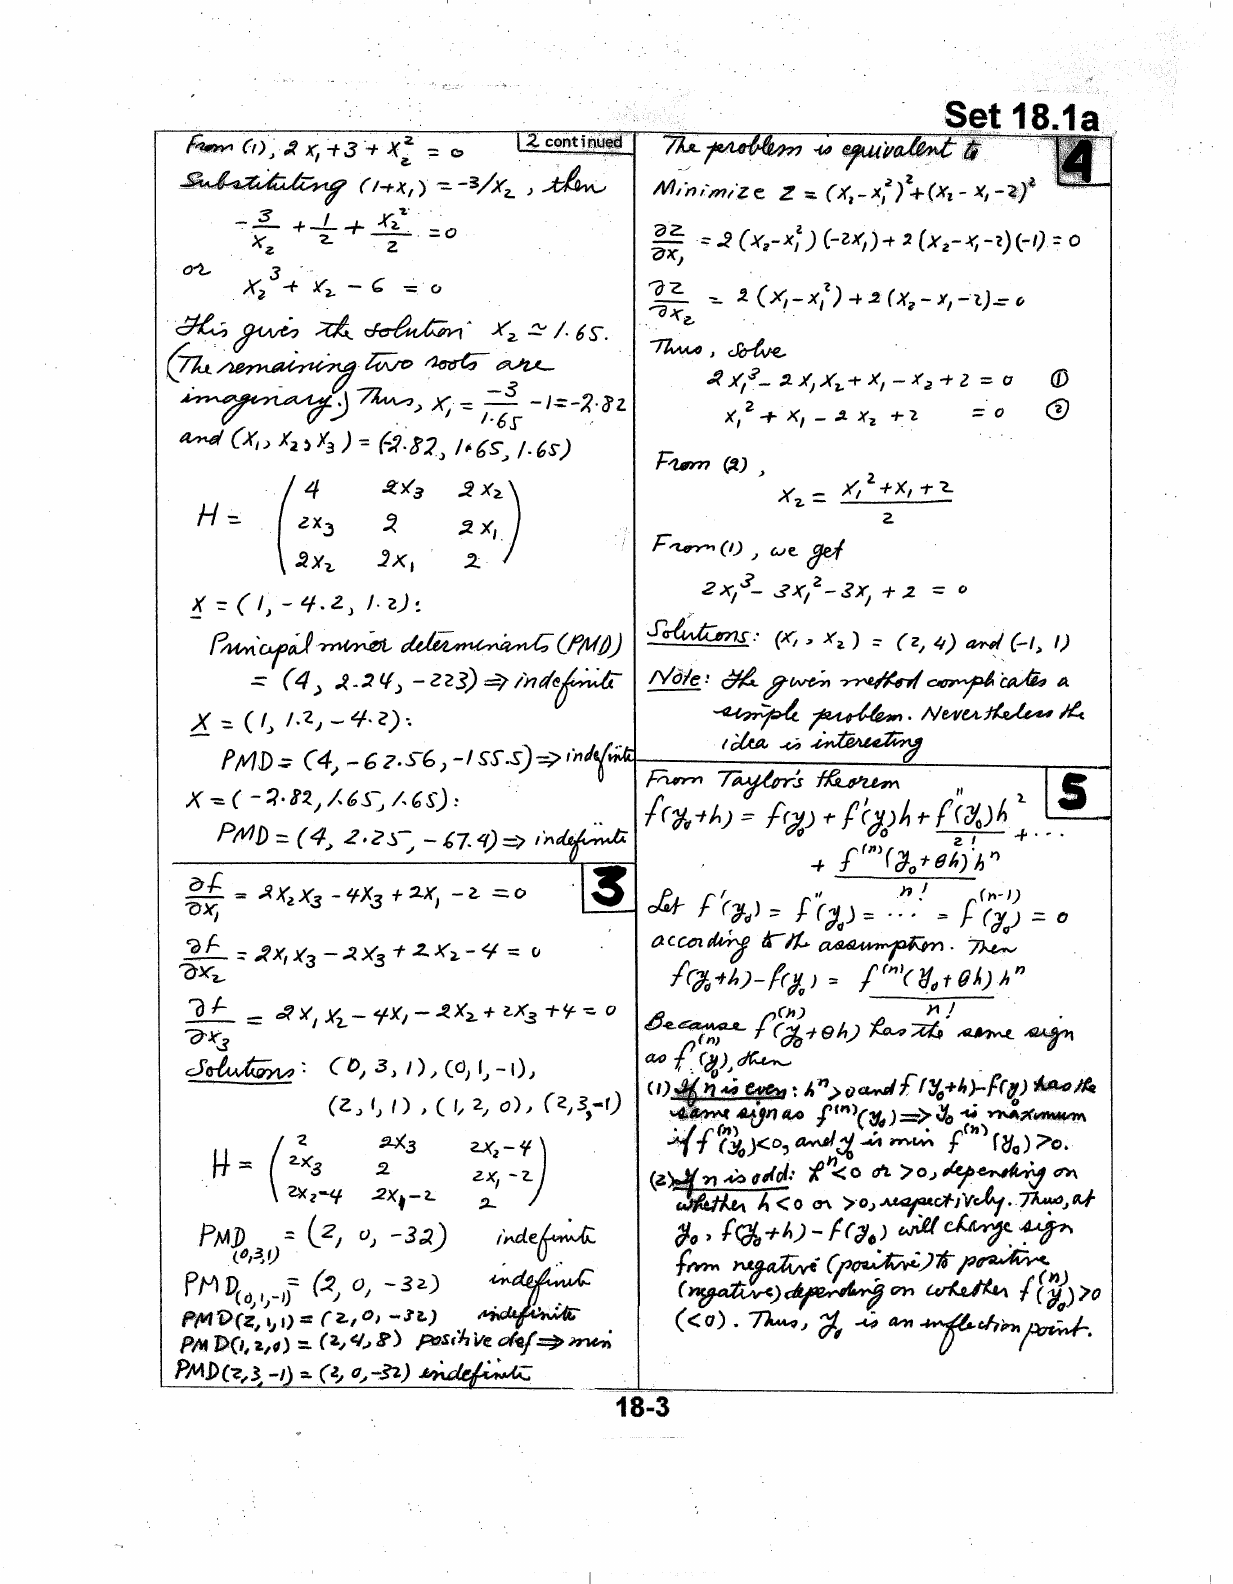 Set 18.1a
2 continued
From (1), 2x₁ + 3 + x₂² = 0
Substituting (1+x₁) = -3/x₂, then
-3/x₂ + 1/2 + x₂²/2 = 0
or
x₂³ + x₂ - 6 = 0
This gives the solution x₂ ≃ 1.65.
(The remaining two roots are
imaginary.) Thus, x₁ = -3/1.65 - 1 = -2.82
and (x₁, x₂, x₃) = (-2.82, 1.65, 1.65)
H = ( 4 2x₃ 2x₂
2x₃ 2 2x₁
2x₂ 2x₁ 2 )
X = (1, -4.2, 1.2):
Principal minor determinants (PMD)
= (4, 2.24, -223) ⇒ indefinite
X = (1, 1.2, -4.2):
PMD = (4, -62.56, -155.5) ⇒ indefinite
X = (-2.82, 1.65, 1.65):
PMD = (4, 2.25, -67.4) ⇒ indefinite
3
∂f/∂x₁ = 2x₂x₃ - 4x₃ + 2x₁ - 2 = 0
∂f/∂x₂ = 2x₁x₃ - 2x₃ + 2x₂ - 4 = 0
∂f/∂x₃ = 2x₁x₂ - 4x₁ - 2x₂ + 2x₃ + 4 = 0
Solutions: (0, 3, 1), (0, 1, -1),
(2, 1, 1), (1, 2, 0), (2, 3, -1)
H = ( 2 2x₃ 2x₂-4
2x₃ 2 2x₁-2
2x₂-4 2x₁-2 2 )
PMD(0,3,1) = (2, 0, -32) indefinite
PMD(0,1,-1) = (2, 0, -32) indefinite
PMD(2,1,1) = (2, 0, -32) indefinite
PMD(1,2,0) = (2, 4, 8) positive def ⇒ min
PMD(2,3,-1) = (2, 0, -32) indefinite
4
The problem is equivalent to
Minimize Z = (x₂ - x₁²)² + (x₂ - x₁ - 2)²
∂Z/∂x₁ = 2(x₂ - x₁²)(-2x₁) + 2(x₂ - x₁ - 2)(-1) = 0
∂Z/∂x₂ = 2(x₁ - x₁²) + 2(x₂ - x₁ - 2) = 0
Thus, solve
2x₁³ - 2x₁x₂ + x₁ - x₂ + 2 = 0 ①
x₁² + x₁ - 2x₂ + 2 = 0 ②
From (2),
x₂ = (x₁² + x₁ + 2)/2
From (1), we get
2x₁³ - 3x₁² - 3x₁ + 2 = 0
Solutions: (x₁, x₂) = (2, 4) and (-1, 1)
Note: The given method complicates a
simple problem. Nevertheless the
idea is interesting
5
From Taylor's theorem
f(y₀+h) = f(y₀) + f'(y₀)h + f''(y₀)h²/2! + ...
+ f⁽ⁿ⁾(y₀+θh)hⁿ/n!
Let f'(y₀) = f''(y₀) = ... = f⁽ⁿ⁻¹⁾(y₀) = 0
according to the assumption. Then
f(y₀+h) - f(y₀) = f⁽ⁿ⁾(y₀+θh)hⁿ/n!
Because f⁽ⁿ⁾(y₀+θh) has the same sign
as f⁽ⁿ⁾(y₀), then
(1) If n is even: hⁿ > 0 and f(y₀+h)-f(y₀) has the
same sign as f⁽ⁿ⁾(y₀) ⇒ y₀ is maximum
if f⁽ⁿ⁾(y₀) < 0, and y₀ is min f⁽ⁿ⁾(y₀) > 0.
(2) If n is odd: hⁿ < 0 or > 0, depending on
whether h < 0 or > 0, respectively. Thus, at
y₀, f(y₀+h) - f(y₀) will change sign
from negative (positive) to positive
(negative) depending on whether f⁽ⁿ⁾(y₀) > 0
(< 0). Thus, y₀ is an inflection point.
18-3